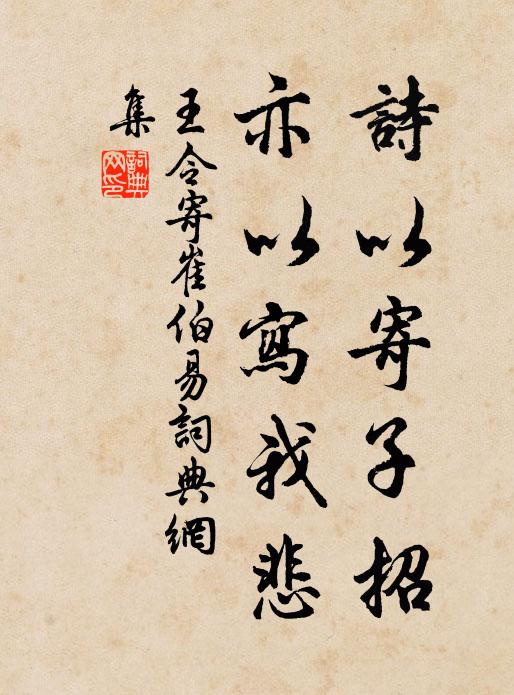 詩以寄子招
亦以寫我悲
王令寄崔伯易詞典網
集
詞典
网印